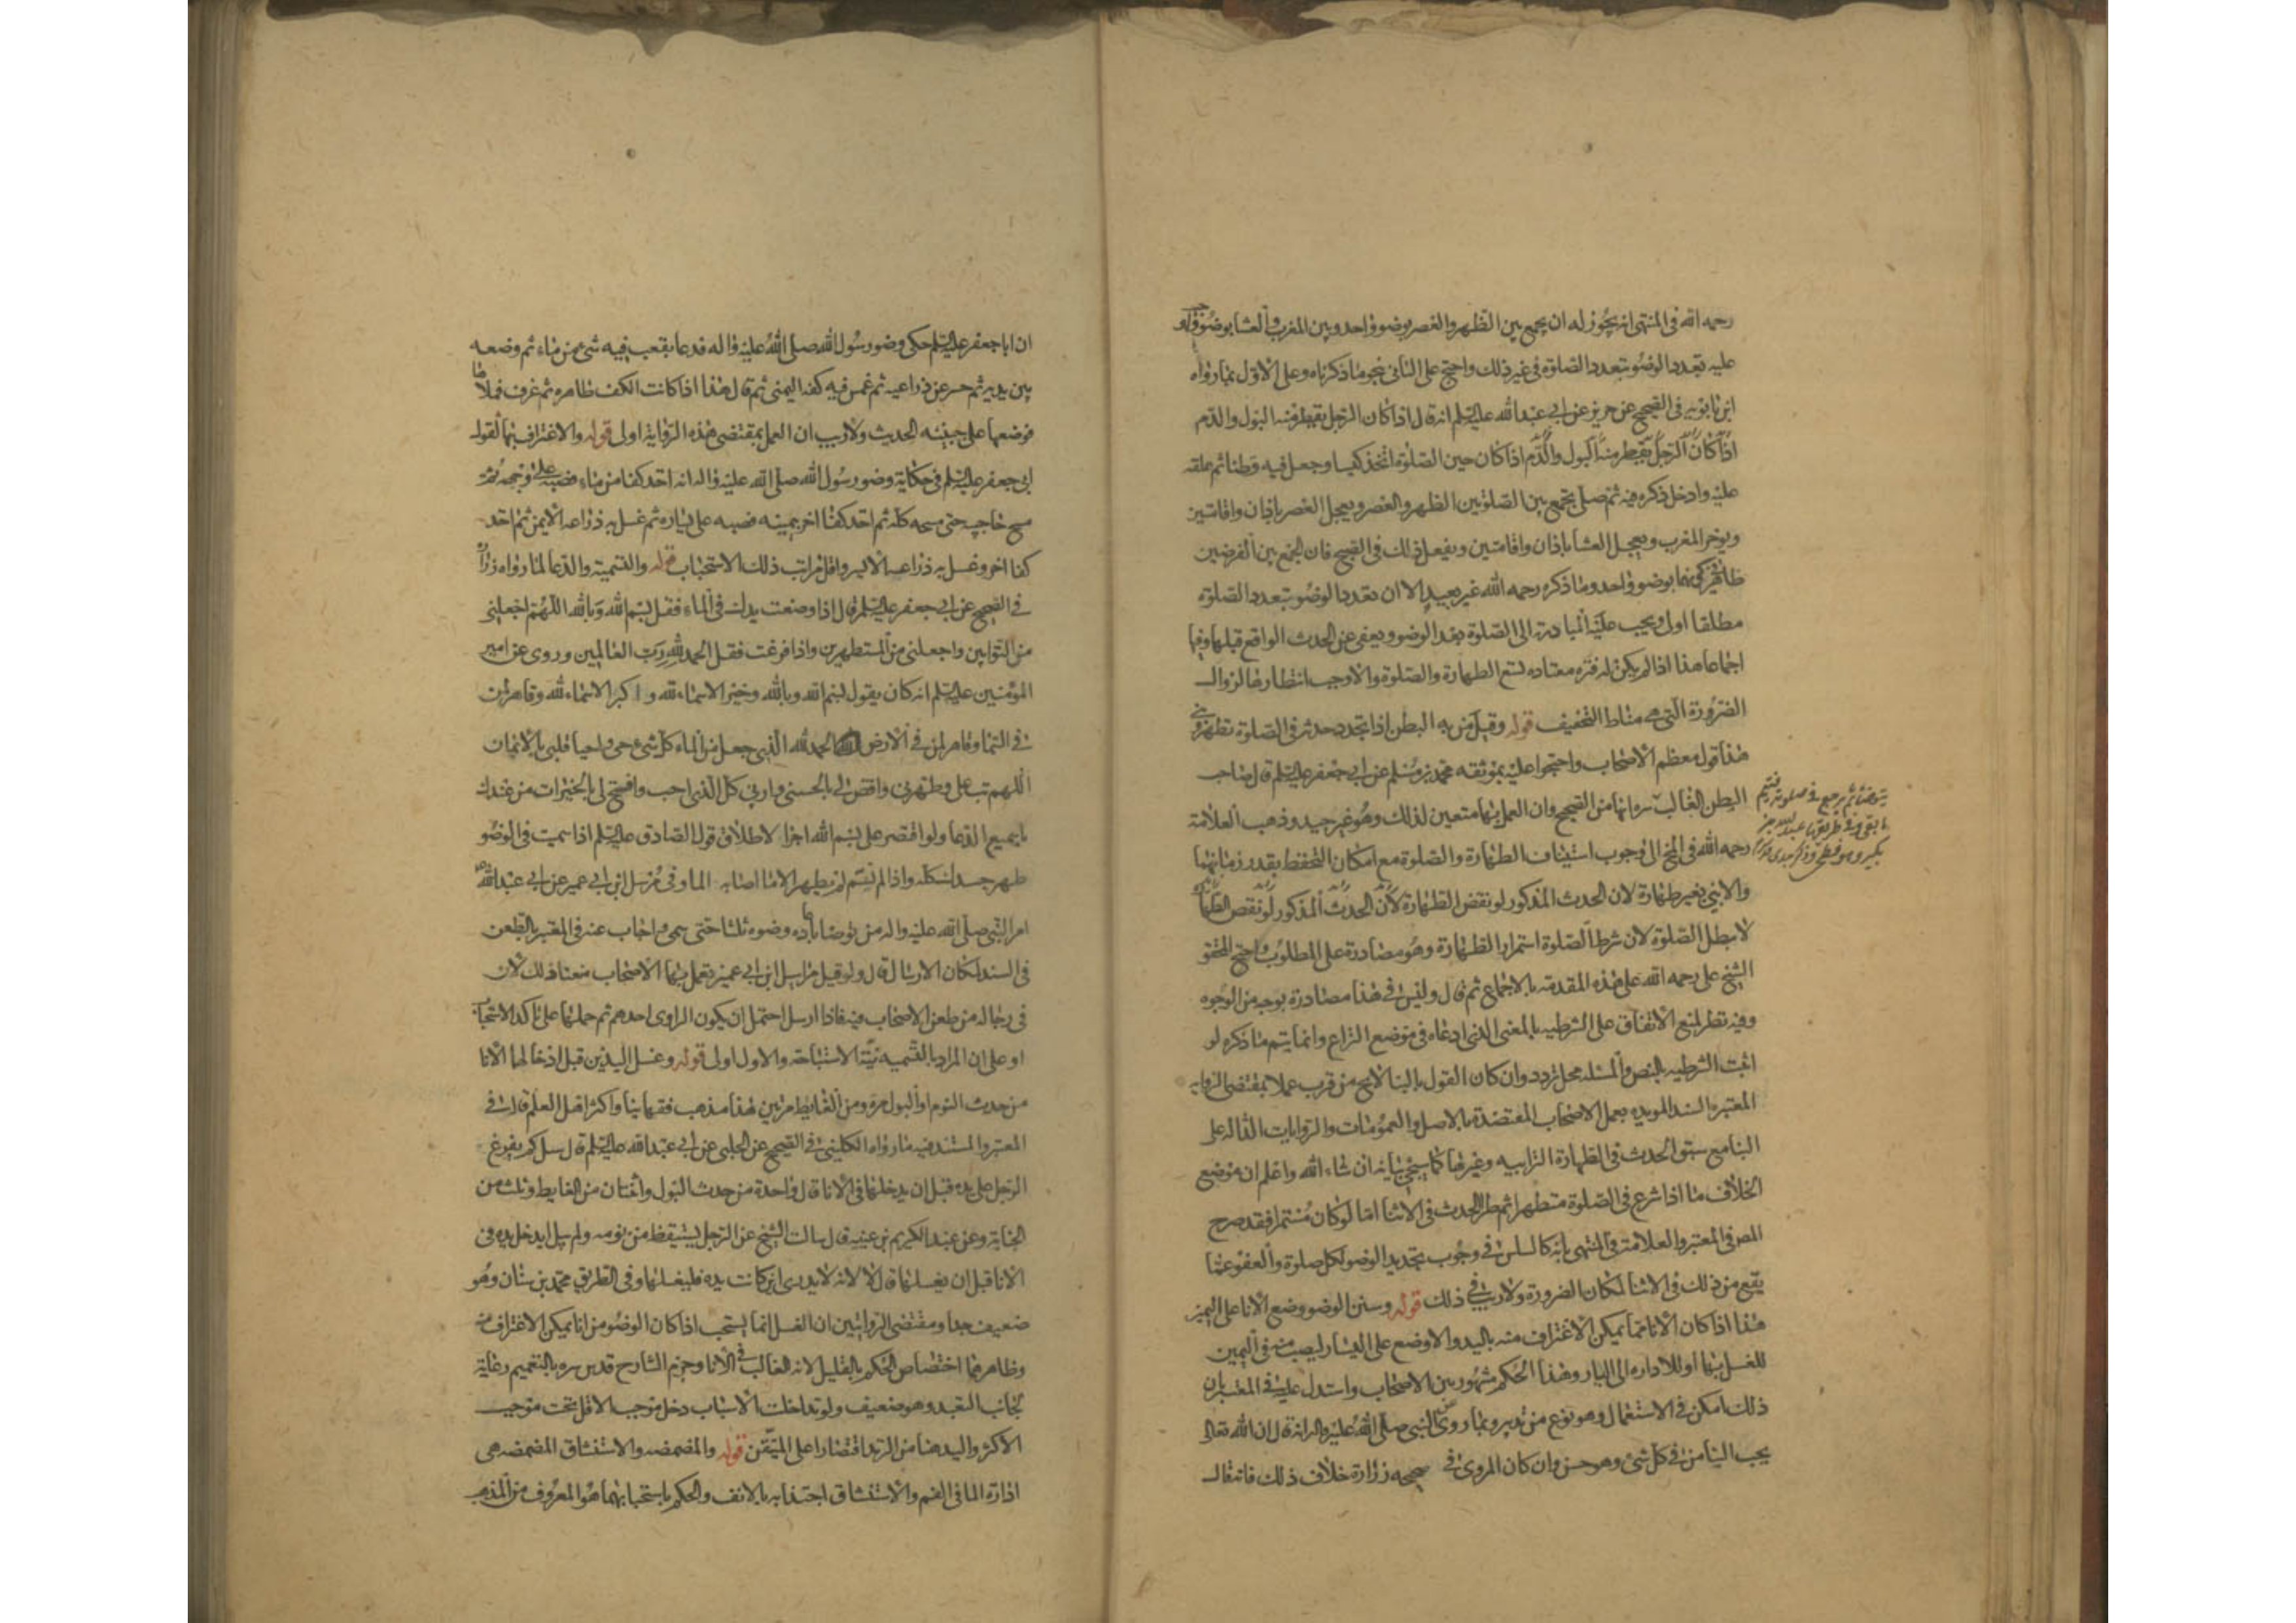 رحمه الله في المنتهى انه يجوز له ان يجمع بين الظهر والعصر بوضوء واحد وبين المغرب والعشا بوضوء واحد و
عليه تعدد الوضوء بتعدد الصلوة في غير ذلك واحتج على الثاني بنحو ما ذكرناه وعلى الاول بما رواه
ابن بابويه في الصحيح عن حريز عن ابي عبد الله عليه السلم انه قال اذا كان الرجل يقطر منه البول والدم
اذا كان الرجل يقطر منه البول والدم اذا كان حين الصلوة اتخذ كيسا وجعل فيه قطنا ثم علقه
عليه وادخل ذكره فيه ثم صلى يجمع بين الصلوتين الظهر والعصر ويعجل العصر باذان واقامتين
ويوخر المغرب ويعجل العشا باذان واقامتين ويفعل ذلك في الصبح فان الجمع بين الفرضين
ظاهر في كونهما بوضوء واحد وما ذكره رحمه الله غير بعيد الا ان تعدد الوضوء بتعدد الصلوة
مطلقا اولى ويجب عليه المبادرة الى الصلوة بعد الوضوء ويعفى عن الحدث الواقع قبلها وفيها
اجماعا هذا اذا لم يكن له فترة معتاده تسع الطهارة والصلوة والا وجب انتظارها لزوال
الضرورة التي هي مناط التخفيف قوله وقيل من به البطن اذا تجدد حدثه في الصلوة تطهر وبنى
هذا قول معظم الاصحاب واحتجوا عليه بموثقه محمد بن مسلم عن ابي جعفر عليه السلم قال صاحب
البطن الغالب
يتوضا ثم يرجع في صلوته فيتم
ما بقي وفي طريقها عبد الله بن
بكير وهو فطحي وذكر
من الصحيح وان العمل بها متعين لذلك وهو غير جيد وذهب العلامة
رحمه الله في المخ الى وجوب استيناف الطهارة والصلوة مع امكان التحفظ بقدر زمانهما
والا بنى بغير طهارة لان الحدث المذكور لو نقض الطهارة لان الحدث المذكور لو نقض الطهارة
لابطل الصلوة لان شرط الصلوة استمرار الطهارة وهو مصادرة على المطلوب واحتج المحقق
الشيخ علي رحمه الله على هذه المقدمة بالاجماع ثم قال وليس في هذا مصادرة بوجه من الوجوه
وفيه نظر لمنع الاتفاق على الشرطيه بالمعنى الذي ادعاه في موضع النزاع وانما يتم ما ذكره لو
اثبت الشرطيه بالنص والمسئله محل تردد وان كان القول بالبنا لا يخ من قرب عملا بمقتضى الروايه
المعتبرة السند المويده بعمل الاصحاب المعتضدة بالاصل والعمومات والروايات الداله على
البنا مع سبق الحدث في الطهارة الترابيه وغيرها كما سيجي بيانه ان شاء الله واعلم ان موضع
الخلاف ما اذا شرع في الصلوة متطهرا ثم طرا الحدث في الاثنا اما لو كان مستمرا فقد صرح
المص في المعتبر والعلامة في المنتهى بانه كالسلس في وجوب تجديد الوضو لكل صلوة والعفو عما
يقع من ذلك في الاثنا لمكان الضرورة ولا ريب في ذلك قوله وسنن الوضو وضع الانا على اليمين
هذا اذا كان الانا مما يمكن الاغتراف منه باليد والا وضع على اليسار ليصب منه في اليمين
للغسل بها او للاداره الى اليسار وهذا الحكم مشهور بين الاصحاب واستدل عليه في المعتبر بان
ذلك امكن في الاستعمال وهو نوع من تدبير وبما روي عن النبي صلى الله عليه واله انه قال ان الله تعالى
يحب التيامن في كل شئ وهو حسن وان كان المروي في صحيحه زرارة خلاف ذلك فانه قال
ان ابا جعفر عليه السلم حكى وضوء رسول الله صلى الله عليه واله فدعا بقعب فيه شئ من ماء ثم وضعه
بين يديه ثم حسر عن ذراعيه ثم غمس فيه كفه اليمنى ثم قال هذا اذا كانت الكف طاهره ثم غرف فملأها ما
فوضعها على جبينه الحديث ولا ريب ان العمل بمقتضى هذه الرواية اولى قوله والاغتراف بها لقول
ابي جعفر عليه السلم في حكاية وضوء رسول الله صلى الله عليه واله انه اخذ كفا من ماء فصبه على وجهه ثم
مسح جانبيه حتى مسحه كله ثم اخذ كفا اخر بيمينه فصبه على يساره ثم غسل به ذراعه الايمن ثم اخذ
كفا اخر وغسل به ذراعه الايسر واقل مراتب ذلك الاستحباب قوله والتسمية والدعا لما رواه زرارة
في الصحيح عن ابي جعفر عليه السلم قال اذا وضعت يدك في الماء فقل بسم الله وبالله اللهم اجعلني
من التوابين واجعلني من المتطهرين واذا فرغت فقل الحمد لله رب العالمين وروى عن امير
المؤمنين عليه السلم انه كان يقول بسم الله وبالله وخير الاسماء لله واكبر الاسماء لله وقاهر لمن
في السما وقاهر لمن في الارض الحمد لله الذي جعل من الماء كل شئ حي واحيا قلبي بالايمان
اللهم تب علي وطهرني واقض لي بالحسنى وارني كل الذي احب وافتح لي بالخيرات من عندك
يا سميع الدعا ولو اقتصر على بسم الله اجزا لاطلاق قول الصادق عليه السلم اذا سميت في الوضوء
طهر جسدك كله واذا لم تسم لم يطهر الا ما اصابه الما وفي مرسل ابن ابي عمير عن ابي عبد الله
امر النبي صلى الله عليه واله من توضا باعاده وضوءه ثلثا حتى سمى واجاب عنه في المعتبر بالطعن
في السند لمكان الارسال قال ولو قيل مراسيل ابن ابي عمير تعمل بها الاصحاب منعنا ذلك لان
في رجاله من طعن الاصحاب فيه فاذا ارسل احتمل ان يكون الراوي احدهم ثم حملها على تاكد الاستحباب
او على ان المراد بالتسميه نية الاستباحة والاول اولى قوله وغسل اليدين قبل ادخالهما الانا
من حدث النوم او البول مرة ومن الغايط مرتين هذا مذهب فقهاينا واكثر اهل العلم قاله في
المعتبر والمستند فيه ما رواه الكليني في الصحيح عن الحلبي عن ابي عبد الله عليه السلم قال سئل كم يفرغ
الرجل على يده قبل ان يدخلها في الانا قال واحدة من حدث البول واثنتان من الغايط وثلث من
الجنابة وعن عبد الكريم بن عتبة قال سالت الشيخ عن الرجل يستيقظ من نومه ولم يبل ايدخل يده في
الانا قبل ان يغسلها قال لا لانه لا يدري اين كانت يده فليغسلها وفي الطريق محمد بن سنان وهو
ضعيف جدا ومقتضى الروايتين ان الغسل انما يستحب اذا كان الوضوء من انا يمكن الاغتراف منه
وظاهرهما اختصاص الحكم بالقليل لانه الغالب في الانا وجزم الشارح قدس سره بالتعميم رعاية
لجانب التعبد وهو ضعيف ولو تداخلت الاسباب دخل موجب الاقل تحت موجب
الاكثر واليد هنا من الزند اقتصارا على المتيقن قوله والمضمضه والاستنشاق المضمضه هي
ادارة الما في الفم والاستنشاق اجتذابه بالانف والحكم باستحبابهما هو المعروف من المذهب